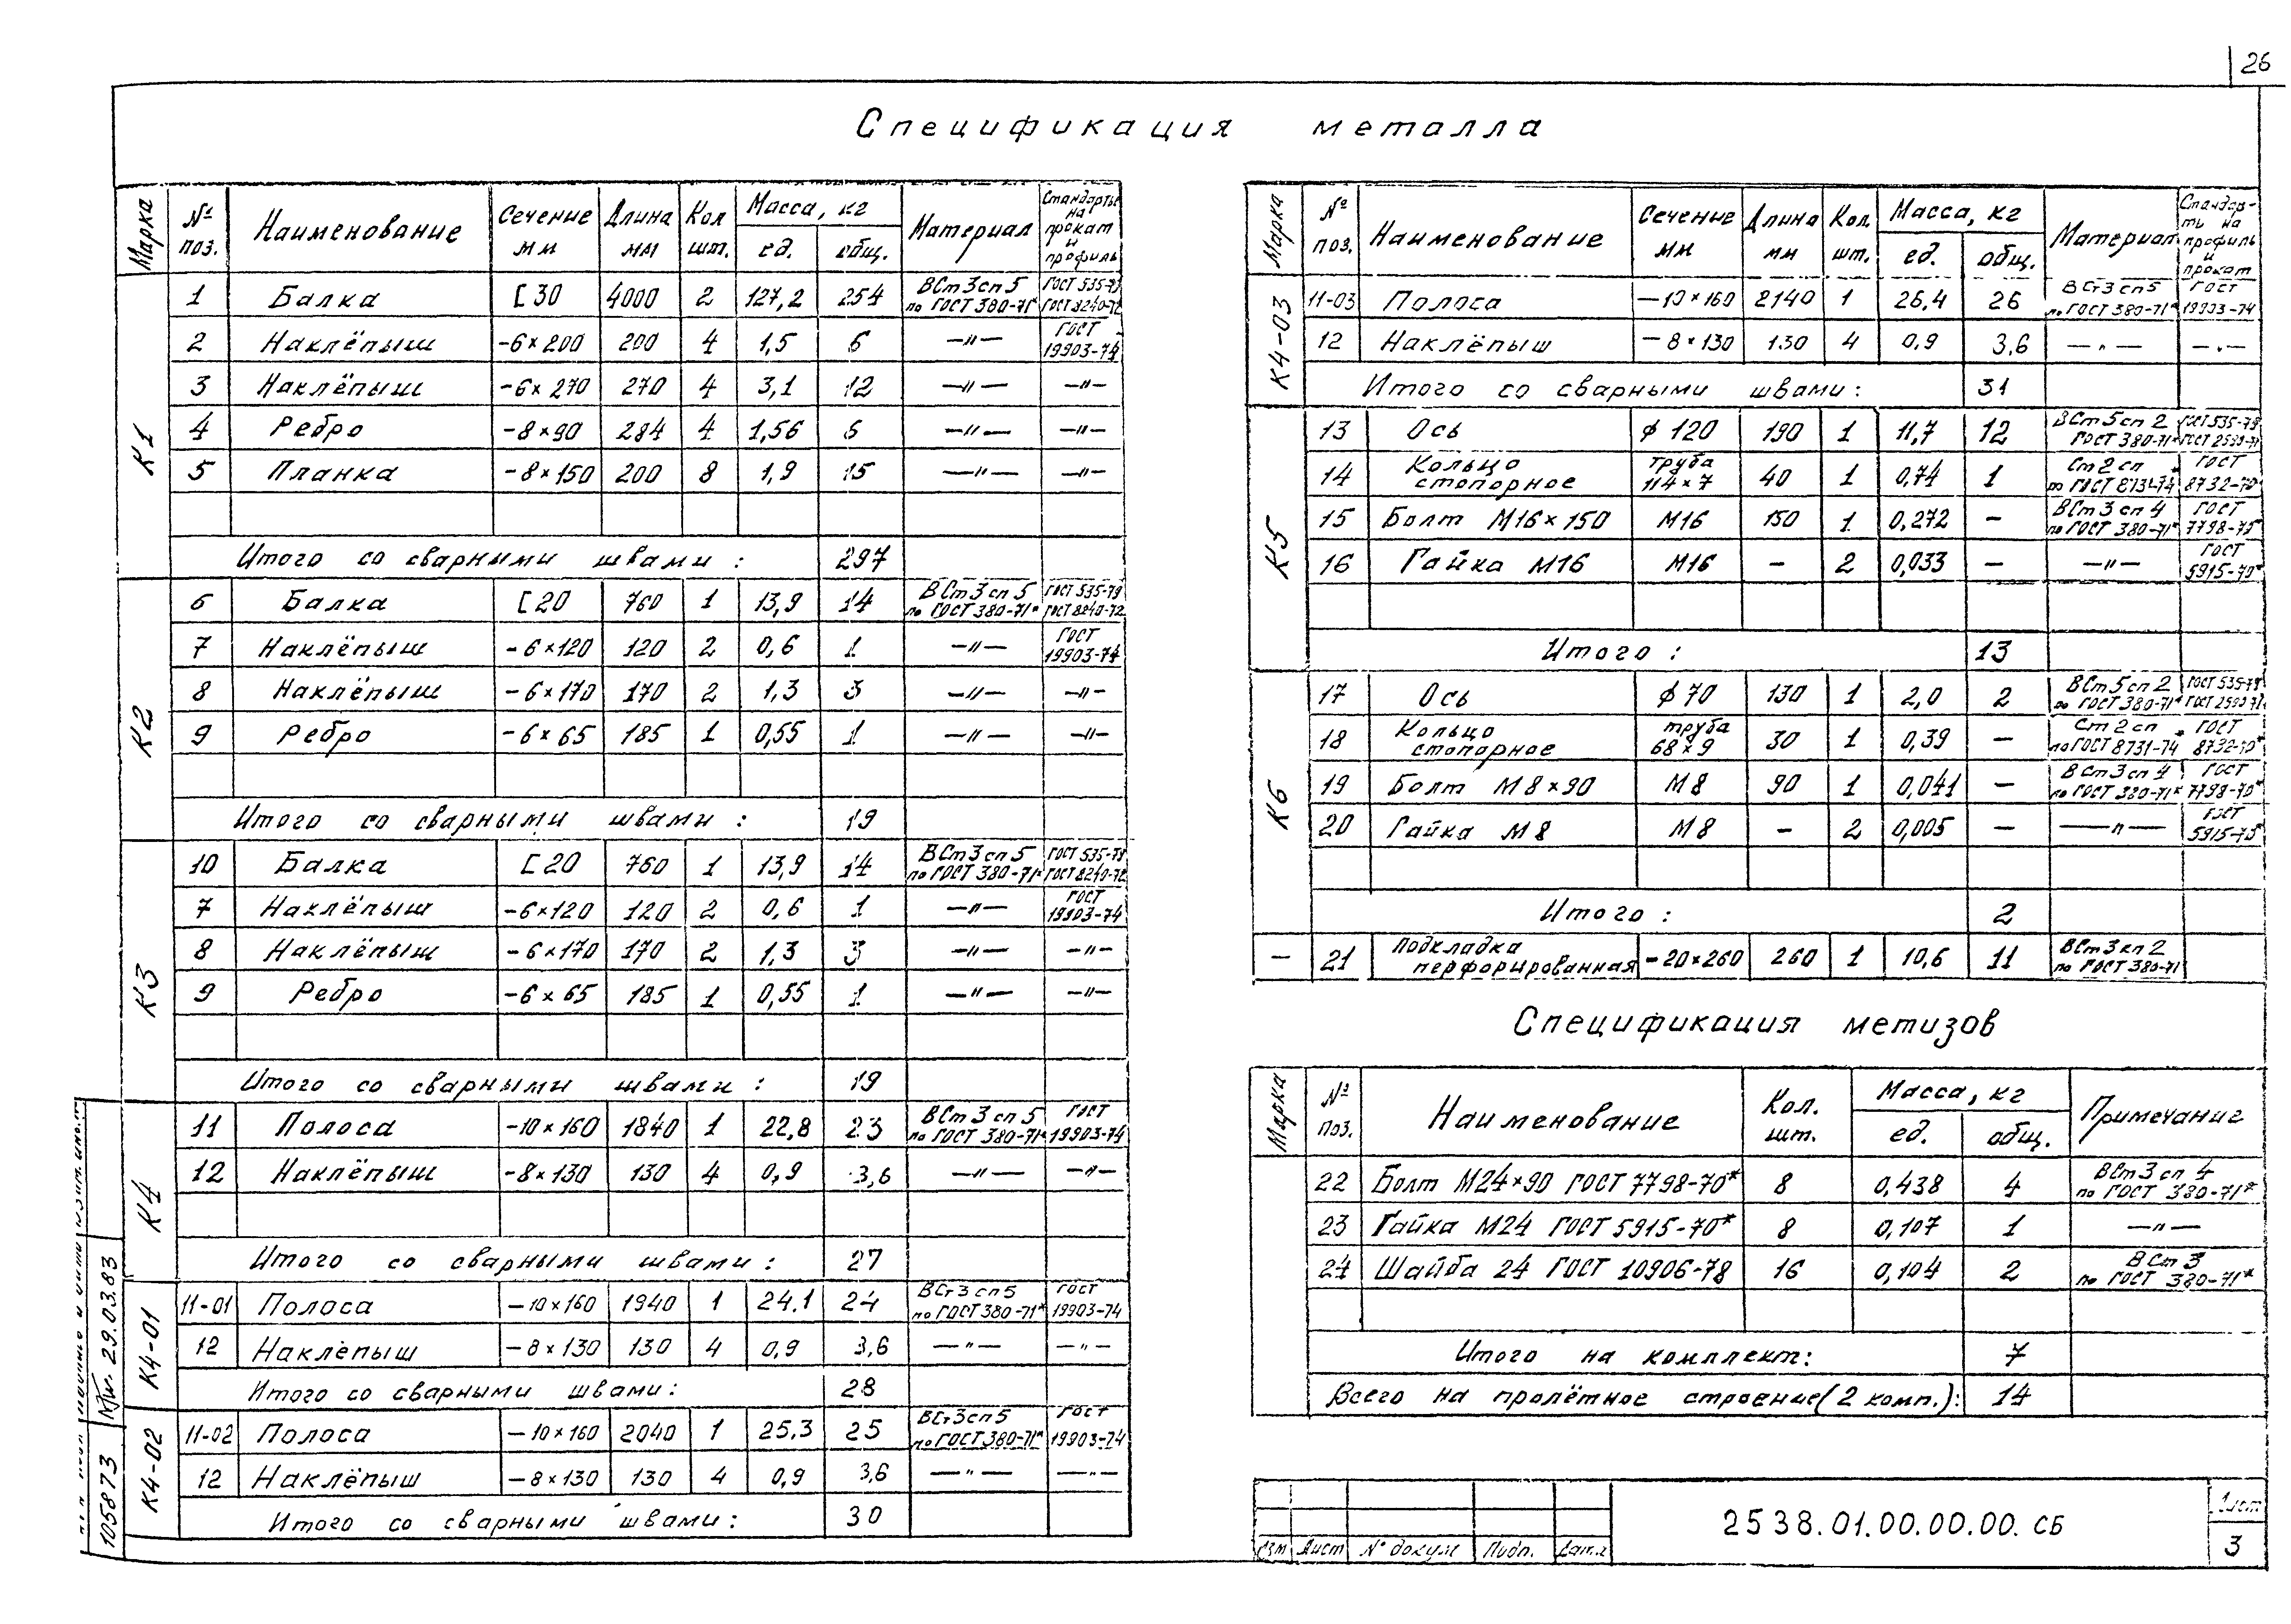 26
Спецификация металла
Марка № поз. Наименование Сечение мм Длина мм Кол шт. Масса, кг ед. общ. Материал Стандарты на прокат и профиль
К1
1 Балка [30 4000 2 127,2 254 ВСт3сп5 по ГОСТ 380-71* ГОСТ 535-79 ГОСТ 8240-72
2 Наклёпыш -6×200 200 4 1,5 6 —"— ГОСТ 19903-74
3 Наклёпыш -6×270 270 4 3,1 12 —"— —"—
4 Ребро -8×90 284 4 1,56 6 —"— —"—
5 Планка -8×150 200 8 1,9 15 —"— —"—
Итого со сварными швами: 297
К2
6 Балка [20 760 1 13,9 14 ВСт3сп5 по ГОСТ 380-71* ГОСТ 535-79 ГОСТ 8240-72
7 Наклёпыш -6×120 120 2 0,6 1 —"— ГОСТ 19903-74
8 Наклёпыш -6×170 170 2 1,3 3 —"— —"—
9 Ребро -6×65 185 1 0,55 1 —"— —"—
Итого со сварными швами: 19
К3
10 Балка [20 760 1 13,9 14 ВСт3сп5 по ГОСТ 380-71* ГОСТ 535-79 ГОСТ 8240-72
7 Наклёпыш -6×120 120 2 0,6 1 —"— ГОСТ 19903-74
8 Наклёпыш -6×170 170 2 1,3 3 —"— —"—
9 Ребро -6×65 185 1 0,55 1 —"— —"—
Итого со сварными швами: 19
К4
11 Полоса -10×160 1840 1 22,8 23 ВСт3сп5 по ГОСТ 380-71* ГОСТ 19903-74
12 Наклёпыш -8×130 130 4 0,9 3,6 —"— —"—
Итого со сварными швами: 27
К4-01
11-01 Полоса -10×160 1940 1 24,1 24 ВСт3сп5 по ГОСТ 380-71* ГОСТ 19903-74
12 Наклёпыш -8×130 130 4 0,9 3,6 —"— —"—
Итого со сварными швами: 28
К4-02
11-02 Полоса -10×160 2040 1 25,3 25 ВСт3сп5 по ГОСТ 380-71* ГОСТ 19903-74
12 Наклёпыш -8×130 130 4 0,9 3,6 —"— —"—
Итого со сварными швами: 30
Марка № поз. Наименование Сечение мм Длина мм Кол. шт. Масса, кг ед. общ. Материал Стандарты на профиль и прокат
К4-03
11-03 Полоса -10×160 2140 1 26,4 26 ВСт3сп5 по ГОСТ 380-71* ГОСТ 19903-74
12 Наклёпыш -8×130 130 4 0,9 3,6 —"— —"—
Итого со сварными швами: 31
К5
13 Ось ϕ 120 190 1 11,7 12 ВСт5сп2 ГОСТ 380-71* ГОСТ 535-79 ГОСТ 2590-71
14 Кольцо стопорное труба 114×7 40 1 0,74 1 Ст2сп по ГОСТ 8731-74 ГОСТ 8732-70*
15 Болт М16×150 М16 150 1 0,272 – ВСт3сп4 по ГОСТ 380-71* ГОСТ 7798-70*
16 Гайка М16 М16 – 2 0,033 – —"— ГОСТ 5915-70*
Итого: 13
К6
17 Ось ϕ 70 130 1 2,0 2 ВСт5сп2 по ГОСТ 380-71* ГОСТ 535-79 ГОСТ 2590-71
18 Кольцо стопорное труба 68×9 30 1 0,39 – Ст2сп по ГОСТ 8731-74 ГОСТ 8732-70*
19 Болт М8×90 М8 90 1 0,041 – ВСт3сп4 по ГОСТ 380-71* ГОСТ 7798-70*
20 Гайка М8 М8 – 2 0,005 – —"— ГОСТ 5915-70*
Итого: 2
– 21 Подкладка перфорированная -20×260 260 1 10,6 11 ВСт3кп2 по ГОСТ 380-71
Спецификация метизов
Марка № поз. Наименование Кол. шт. Масса, кг ед. общ. Примечание
22 Болт М24×90 ГОСТ 7798-70* 8 0,438 4 ВСт3сп4 по ГОСТ 380-71*
23 Гайка М24 ГОСТ 5915-70* 8 0,107 1 —"—
24 Шайба 24 ГОСТ 10906-78 16 0,104 2 ВСт3 по ГОСТ 380-71*
Итого на комплект: 7
Всего на пролётное строение (2 комп.): 14
Изм Лист № докум Подп. Дата
2538.01.00.00.00.СБ
Лист
3
29.03.83
105873